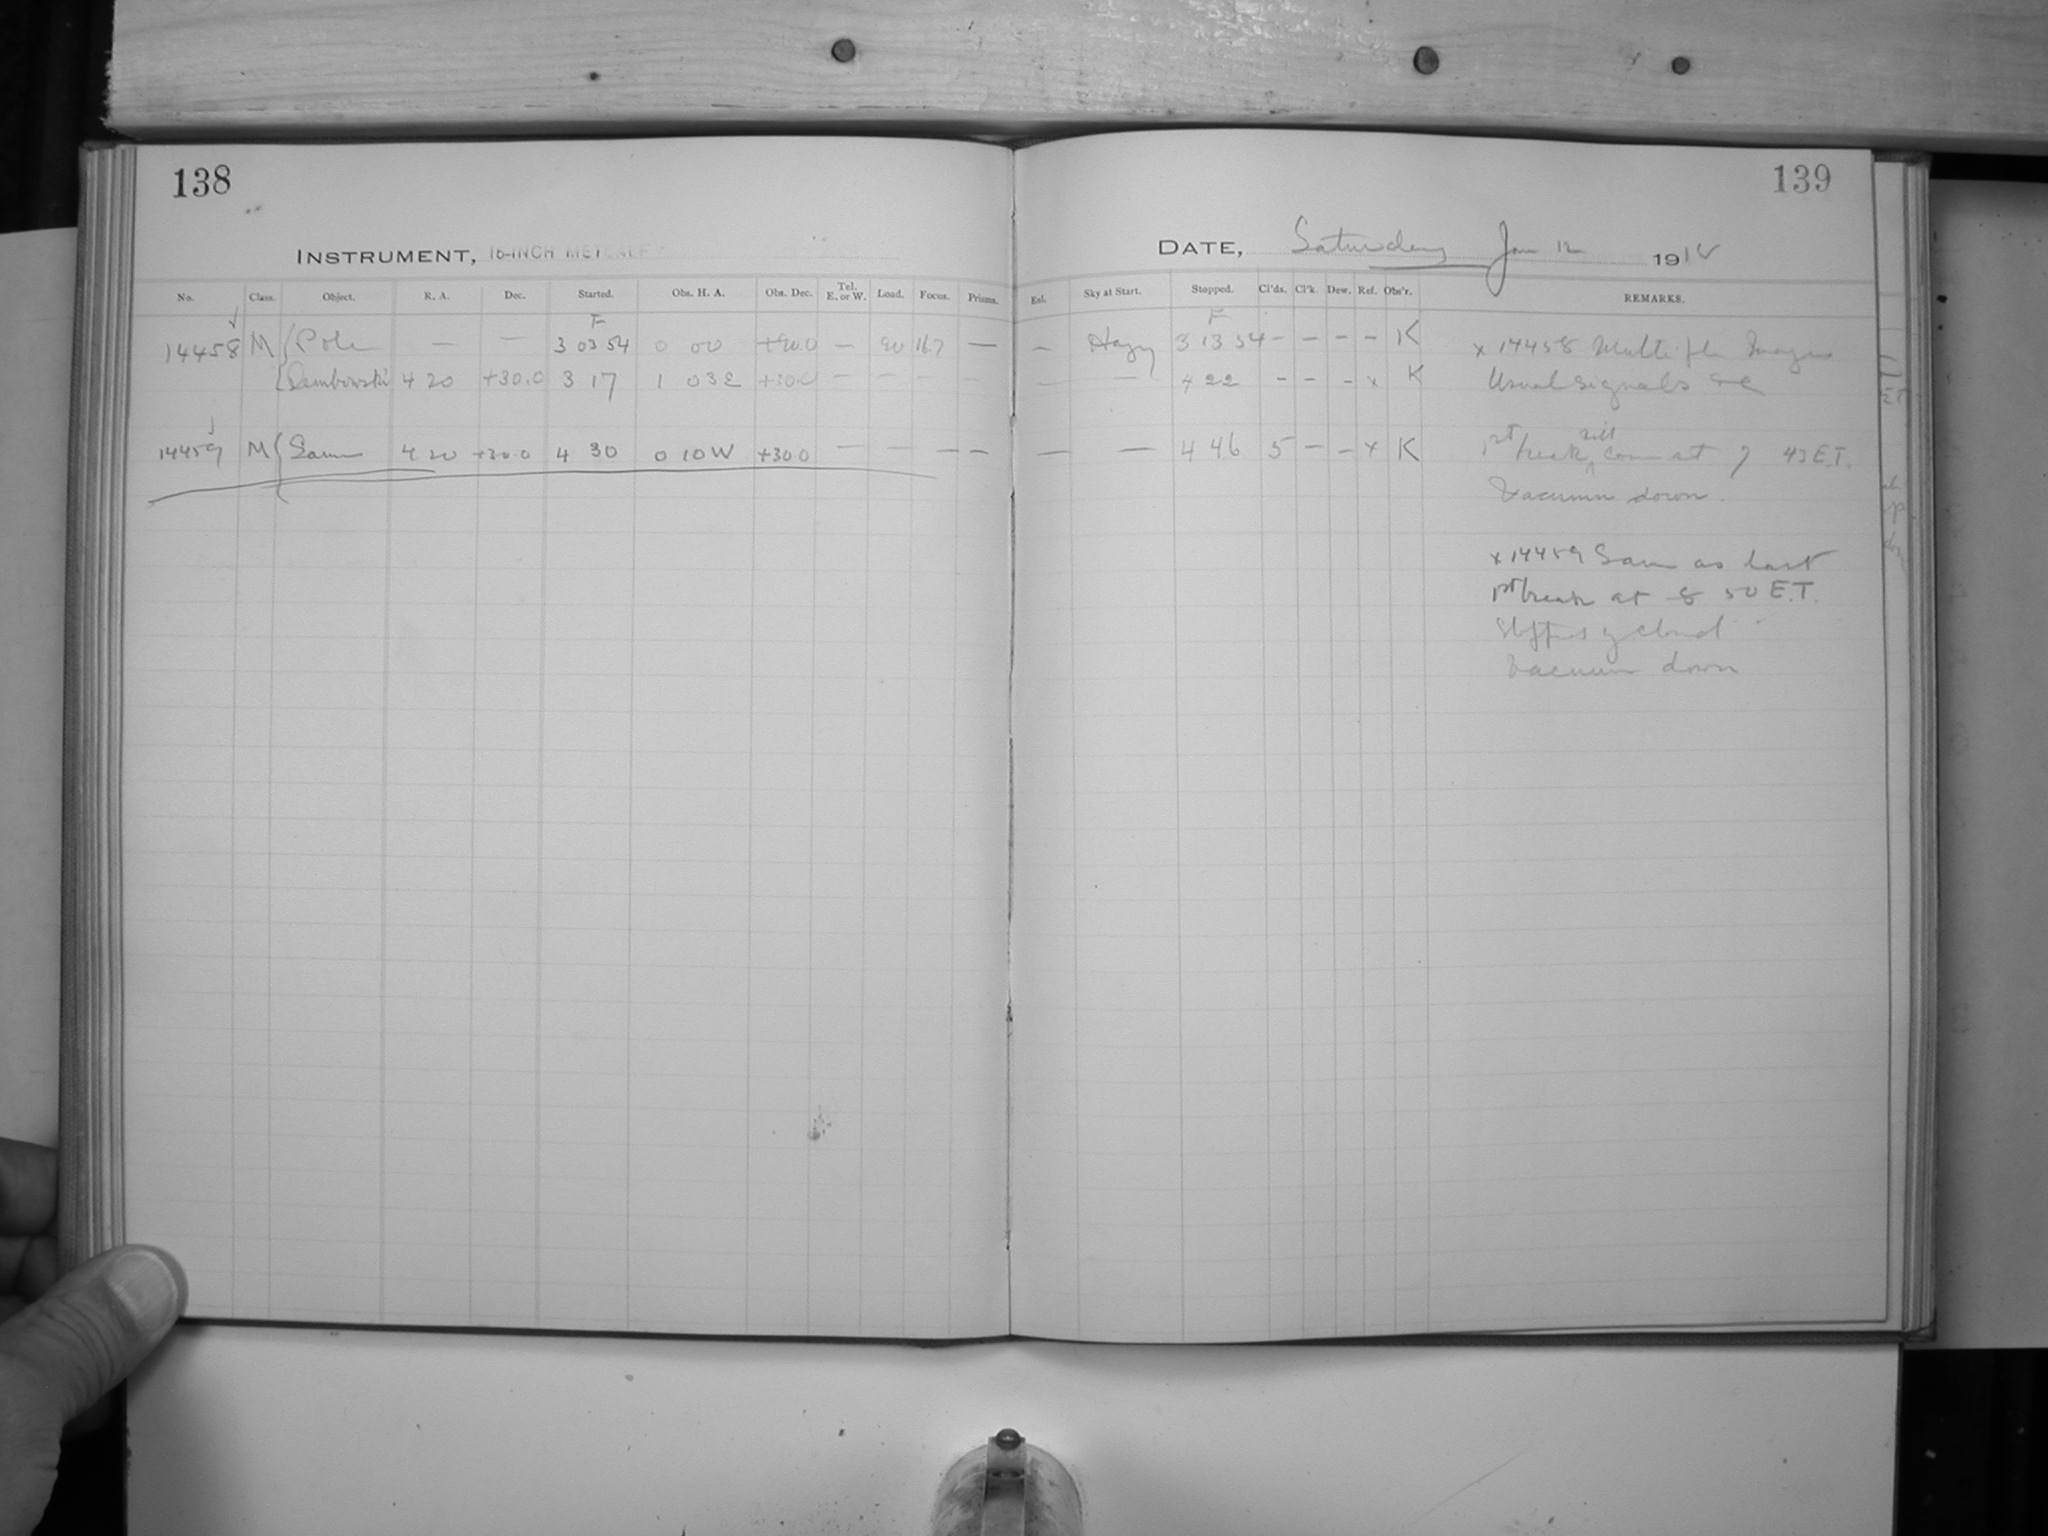 138
139
INSTRUMENT, 16-INCH METCALF
DATE, Saturday Jan 12 1918
No. Class. Object. R. A. Dec. Started. Obs. H. A. Obs. Dec. Tel. E. or W. Load. Focus. Prisms.
Ext. Sky at Start. Stopped. Cl'ds. Cl'k. Dew. Ref. Obs'r. REMARKS.
F
F
14458 M Pole — — 3 03 54 0 00 +90.0 — 90 16.7 —
— Hazy 3 13 54 – – – – K x 14458 Multiple Images
Dembowski 4 20 +30.0 3 17 1 03 E +30.0 — — — —
— — 4 22 – – – x K Usual signals &c
14459 M Same 4 20 +30.0 4 30 0 10 W +30.0 — — — —
— — 4 46 5 – – x K 1st break will come at 7 43 E.T.
Vacuum down.
x 14459 Same as last
1st break at 8 50 E.T.
cloud
Vacuum down